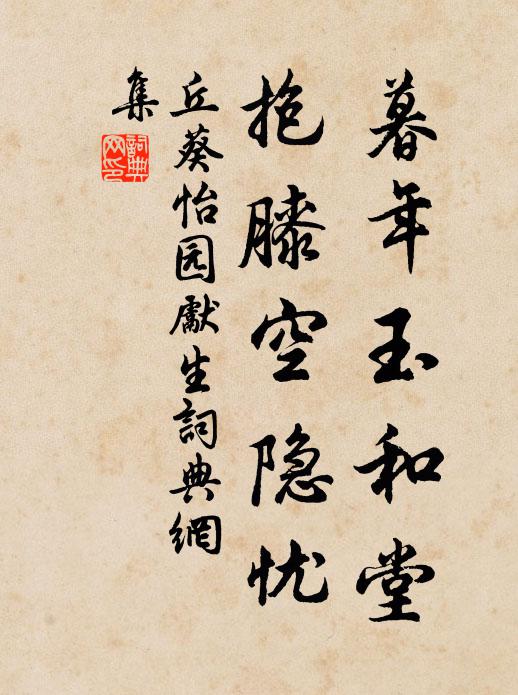 暮年玉和堂
抱膝空隐忧
丘葵怡园獻生詞典網
集
詞典
网印